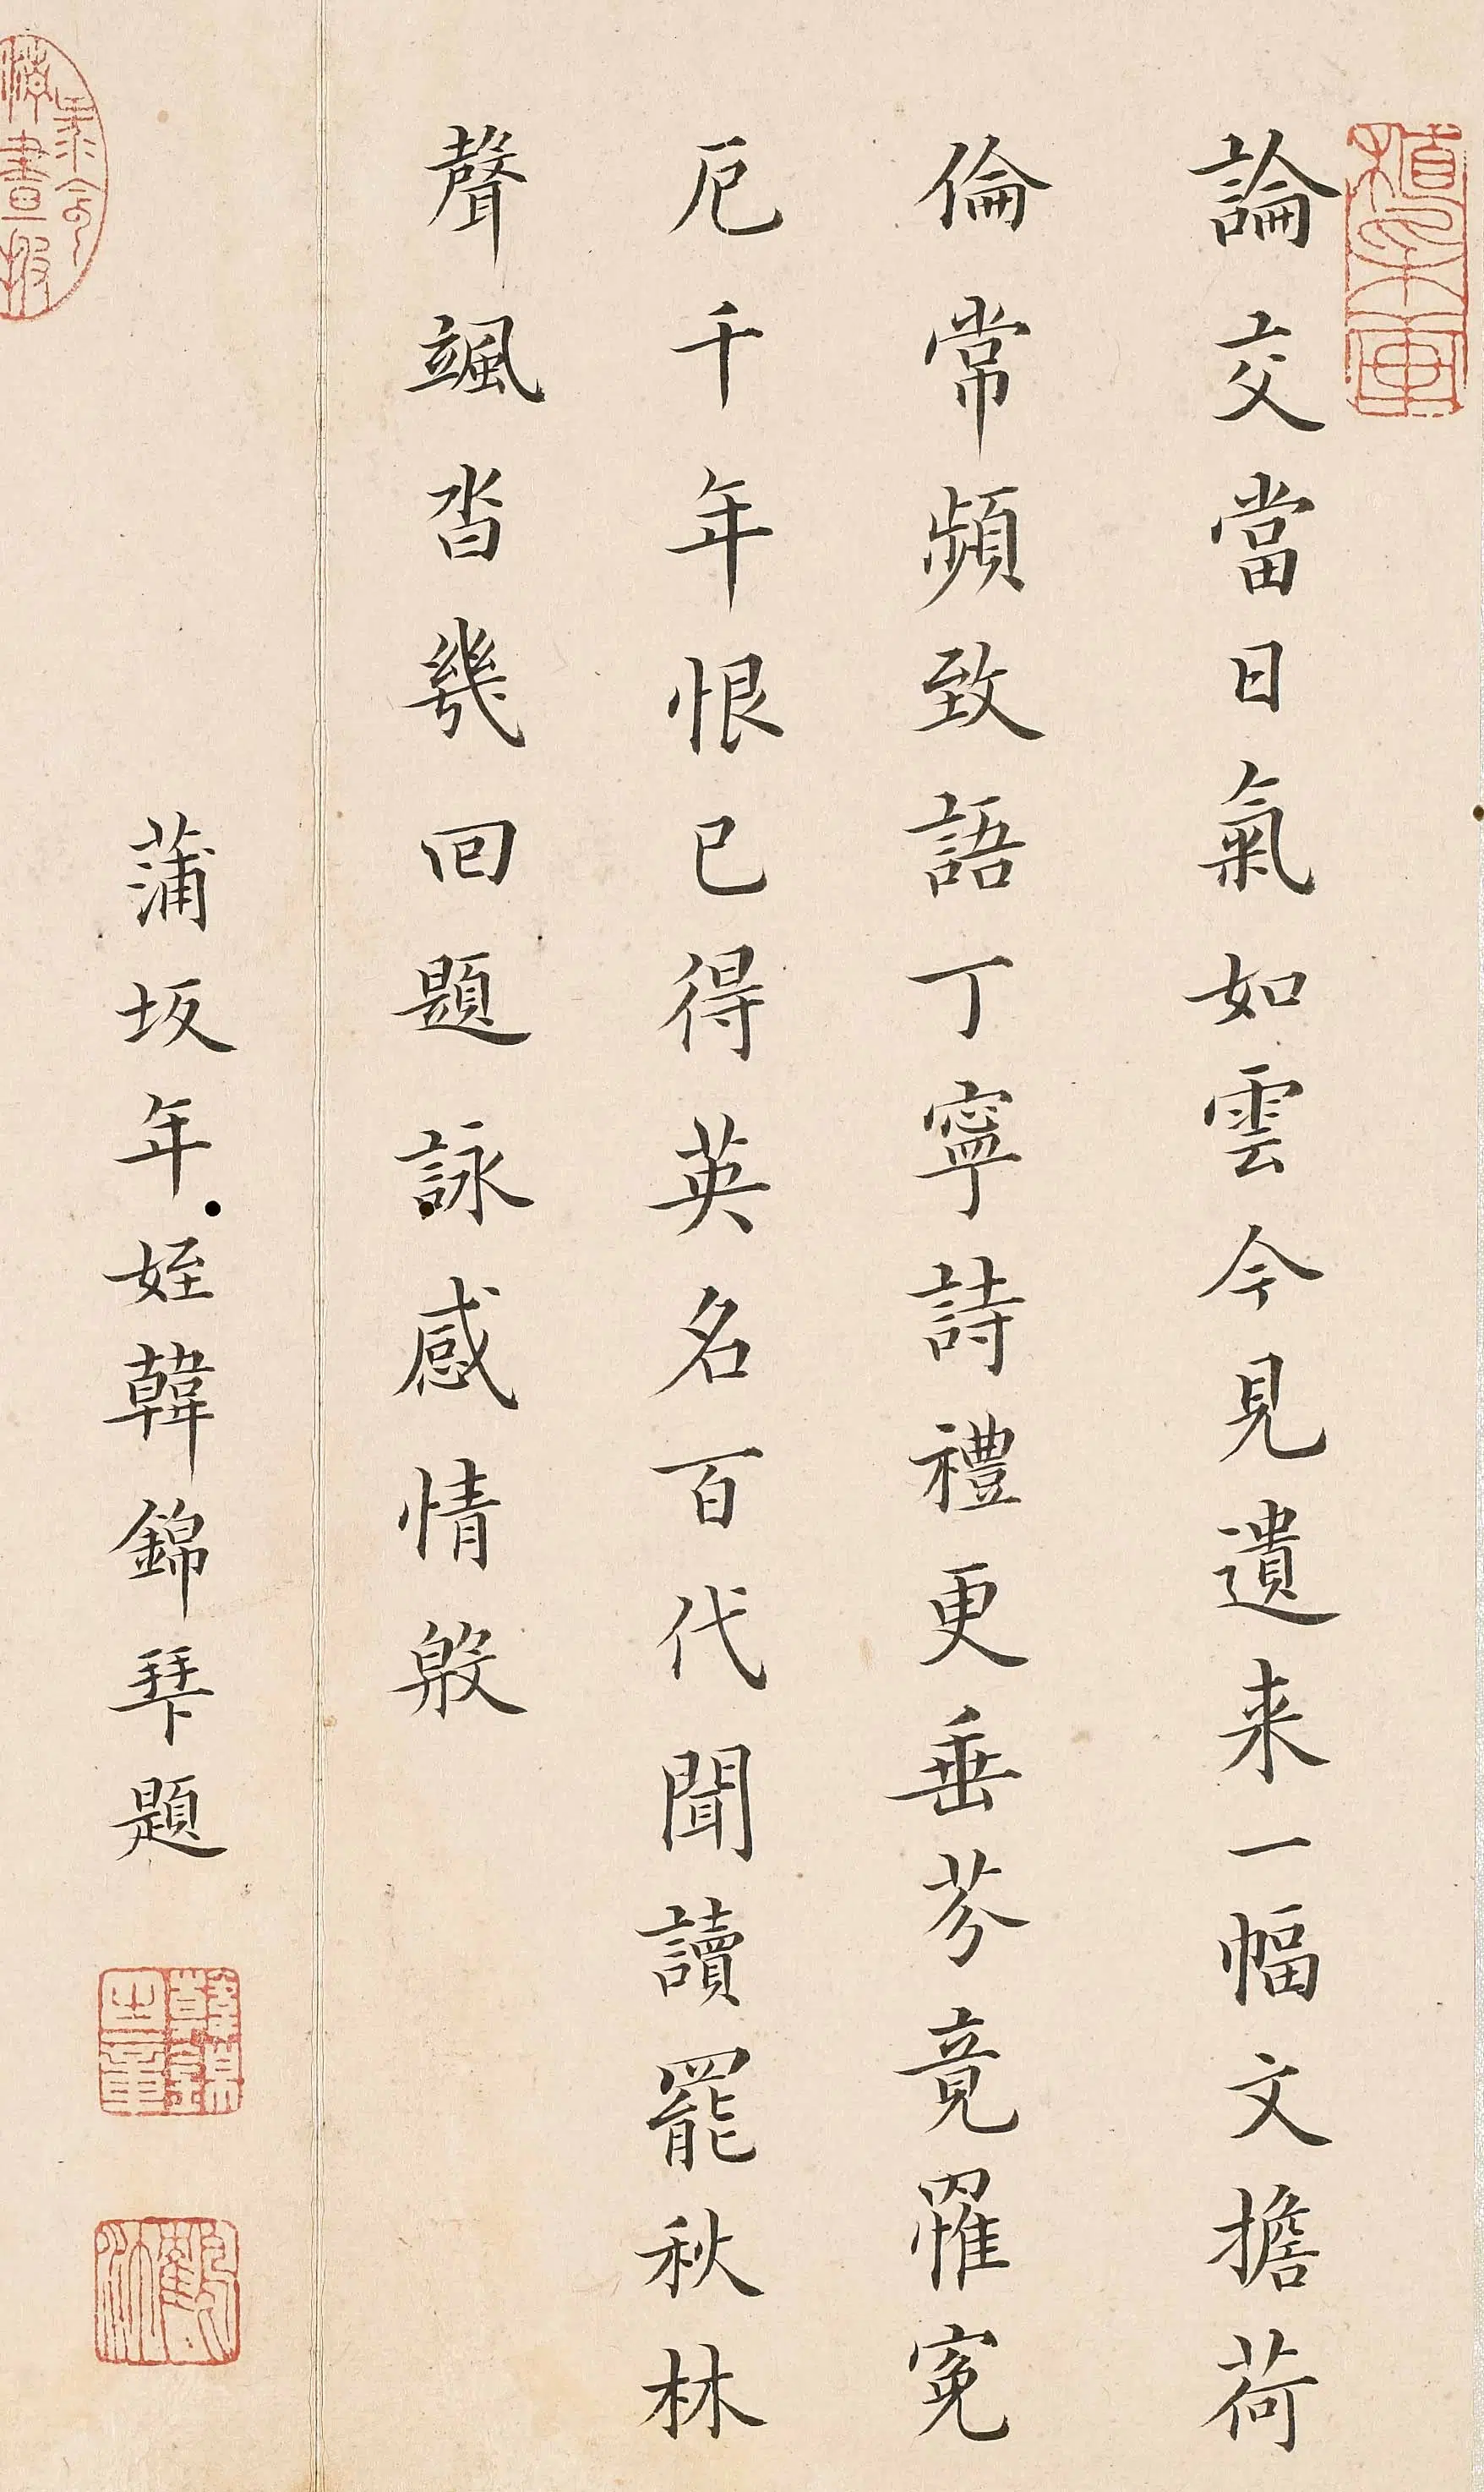 論交當日氣如雲今見遺来一幅文擔荷
倫常頻致語丁寧詩禮更垂芬竟罹寃
厄千年恨已得英名百代聞讀罷秋林
聲颯沓幾回題詠感情殷
蒲坂年姪韓錦琴題